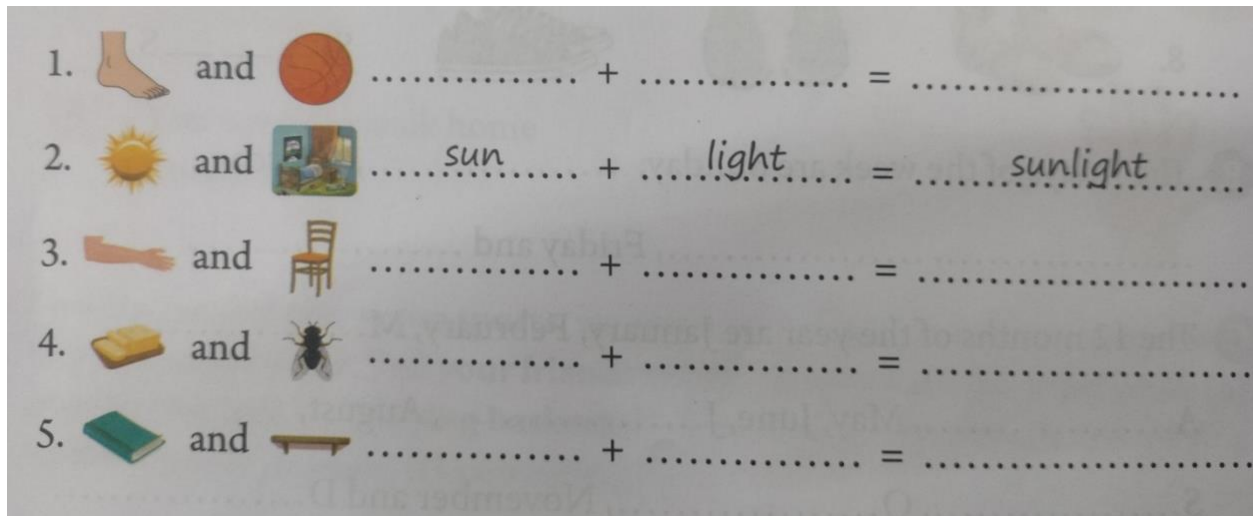 1. and .................... + .................... = ..............................
2. and ......sun...... + ......light...... = ......sunlight......
3. and .................... + .................... = ..............................
4. and .................... + .................... = ..............................
5. and .................... + .................... = ..............................